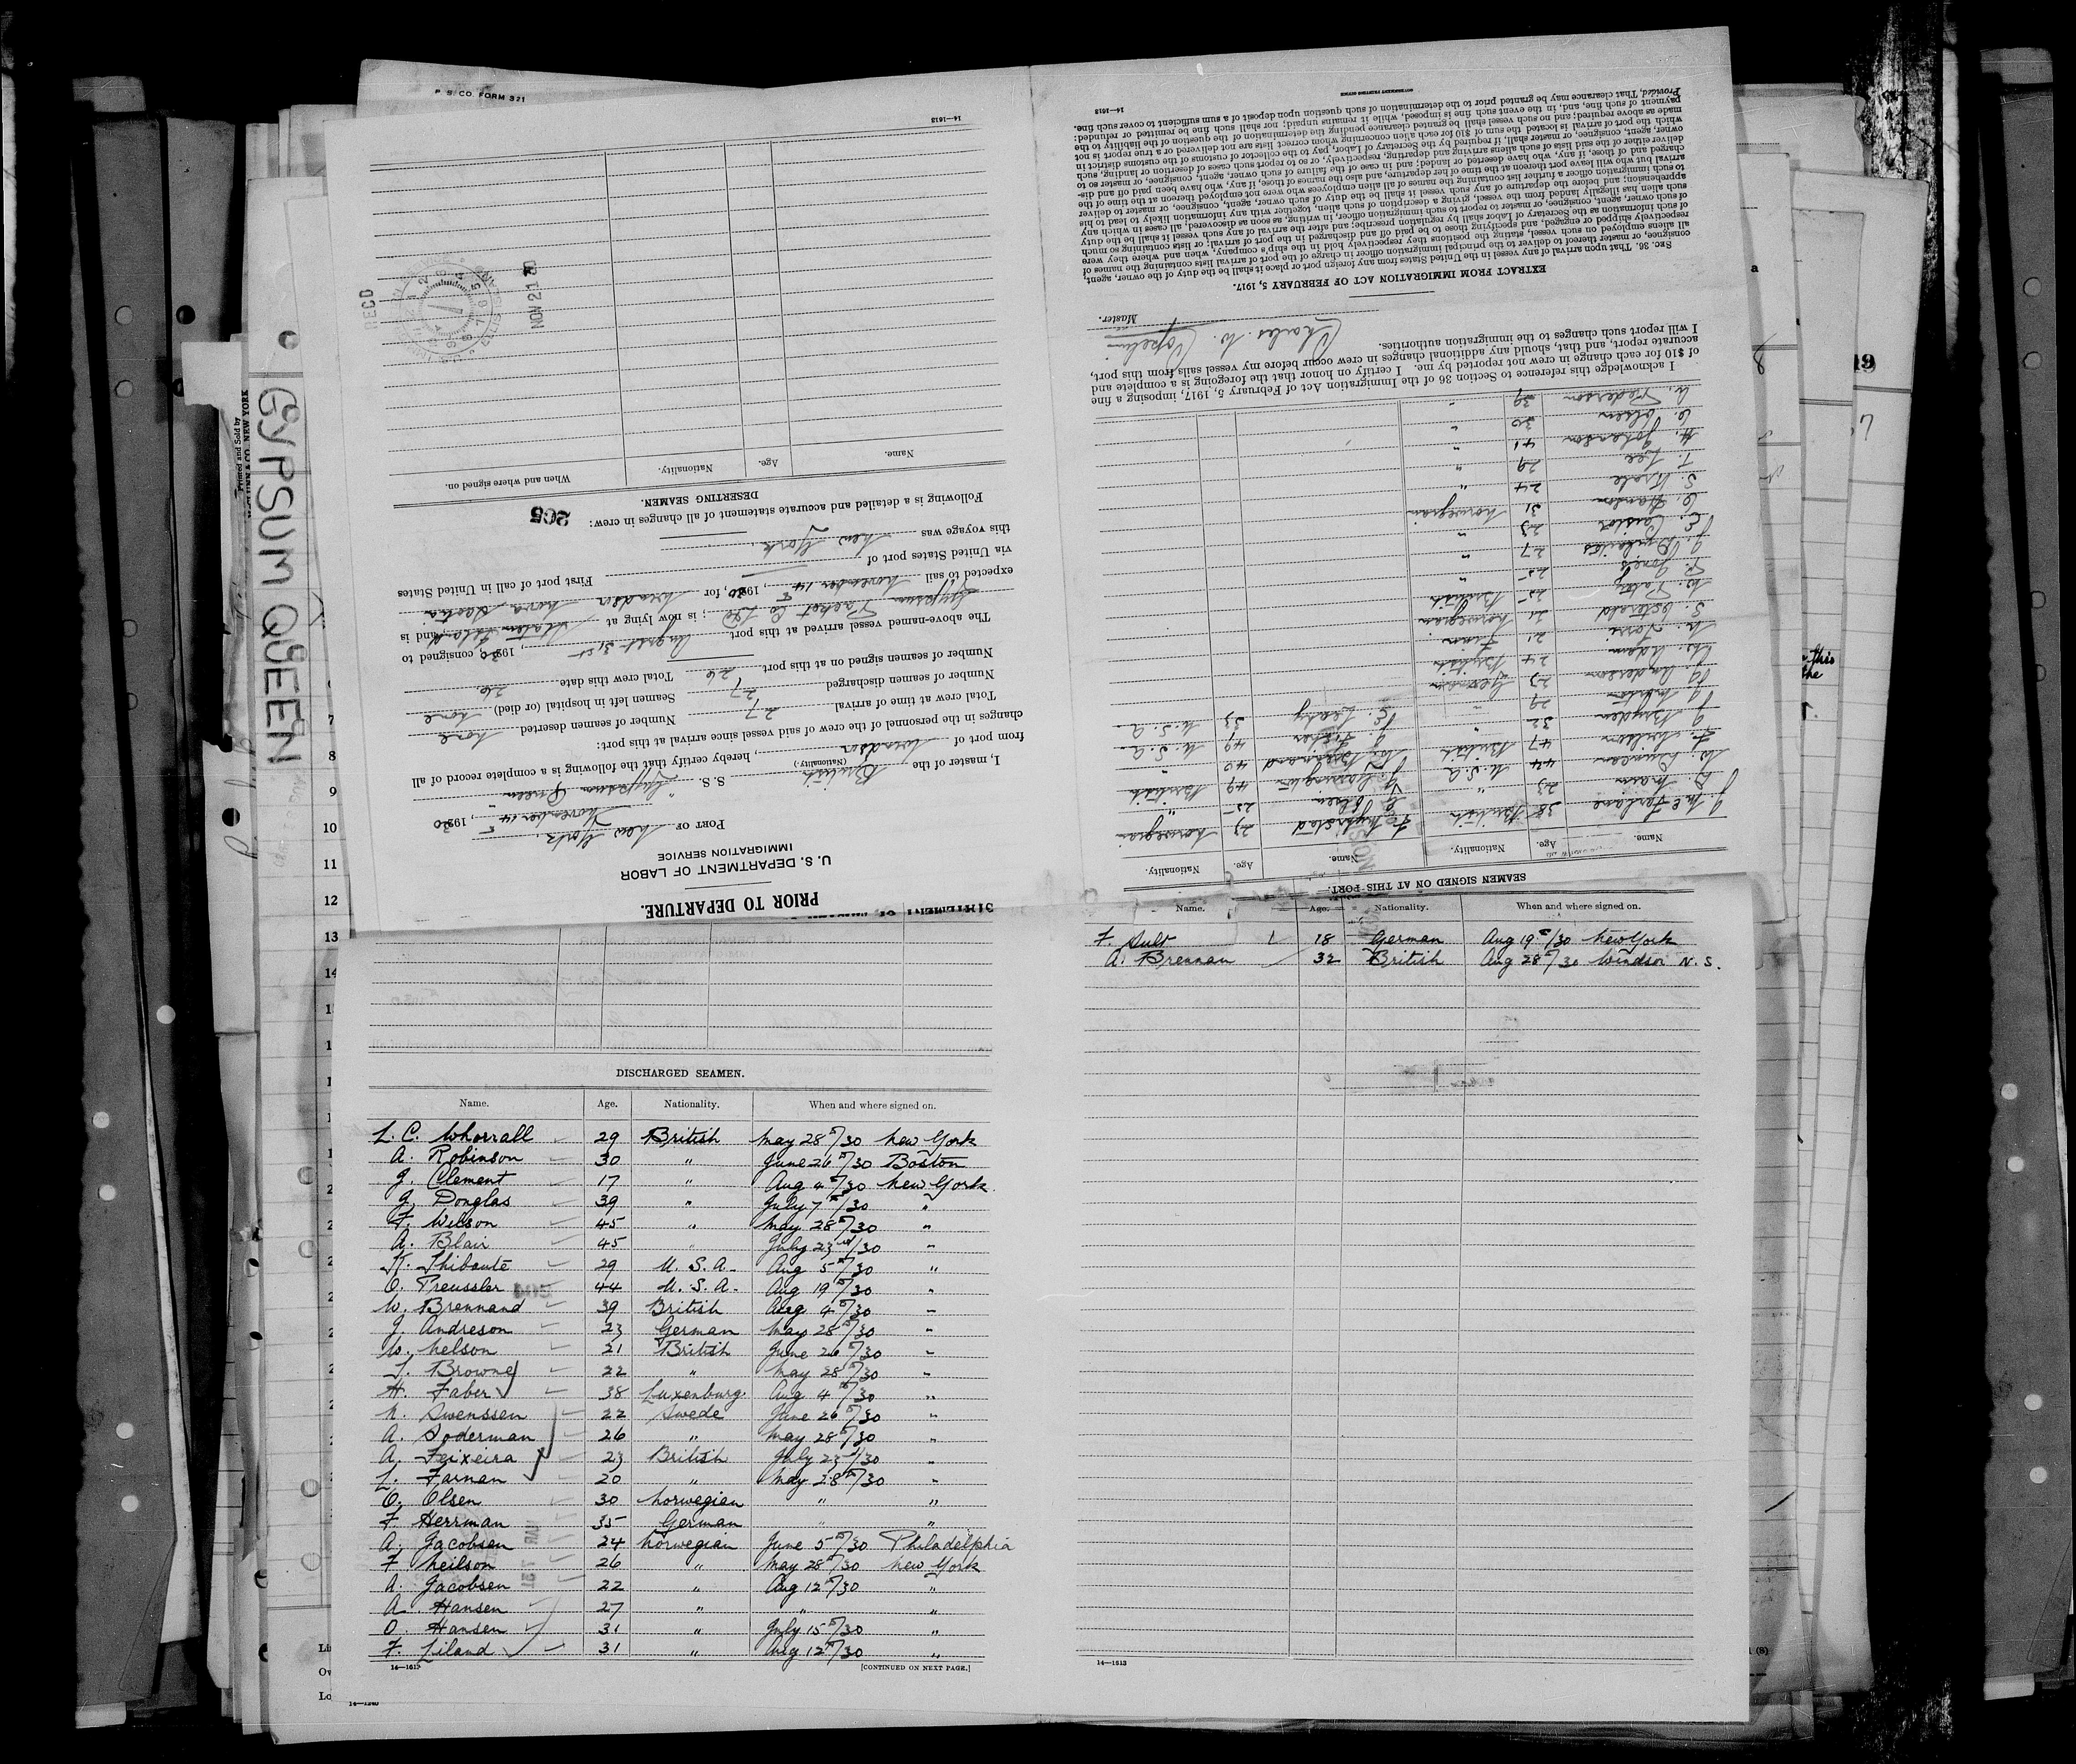 P. S. CO. FORM 321
GYPSUM QUEEN
Printed and Sold by
NEW YORK
14—1613
PRIOR TO DEPARTURE.
U. S. DEPARTMENT OF LABOR
IMMIGRATION SERVICE
PORT OF New York,
November 14th, 1930
I, master of the British S. S. "Gypsum Queen"
(Nationality.)
from port of Windsor, hereby certify that the following is a complete record of all
changes in the personnel of the crew of said vessel since arrival at this port:
Total crew at time of arrival 27 Number of seamen deserted none
Number of seamen discharged 27 Seamen left in hospital (or died) none
Number of seamen signed on at this port 26 Total crew this date 26
The above-named vessel arrived at this port August 31st, 1930, consigned to
Gypsum Packet Co Ltd; is now lying at Staten Island, and is
expected to sail November 14th, 1930, for Windsor Nova Scotia
via United States port of First port of call in United States
this voyage was New York.
Following is a detailed and accurate statement of all changes in crew:
205
DESERTING SEAMEN.
Name. Age. Nationality. When and where signed on.
REC'D
NOV 21 30
SEAMEN SIGNED ON AT THIS PORT.
Name. Age. Nationality. Name. Age. Nationality.
J. McFarlane 38 British 23 Norwegian
D. Main 23 " G. Olsen 25 "
W. Duncan 44 U. S. A 49 British
F. Wilson 47 British W. Brennand 40 "
J. Bryden 32 " J. Fisher 49 U. S. A
29 " E. Leahy 33 U. S. A
J. Anderson 23 German
W. Adam 24 British
21 Finn
21 Norwegian
25 British
P. Jones 25 "
27 "
23 "
C. Hanson 31 Norwegian
24 "
T. Lee 29 "
H. Johanson 41 "
C. Olsen 30 "
Pederson 39 "
I acknowledge this reference to Section 36 of the Immigration Act of February 5, 1917, imposing a fine
of $10 for each change in crew not reported by me. I certify on honor that the foregoing is a complete and
accurate report, and that, should any additional changes in crew occur before my vessel sails from this port,
I will report such changes to the immigration authorities.
Charles W.
Master.
EXTRACT FROM IMMIGRATION ACT OF FEBRUARY 5, 1917.
SEC. 36. That upon arrival of any vessel in the United States from any foreign port or place it shall be the duty of the owner, agent,
consignee, or master thereof to deliver to the principal immigration officer in charge of the port of arrival lists containing the names of
all aliens employed on such vessel, stating the positions they respectively hold in the ship's company, when and where they were
respectively shipped or engaged, and specifying those to be paid off and discharged in the port of arrival; or lists containing so much
of such information as the Secretary of Labor shall by regulation prescribe; and after the arrival of any such vessel it shall be the duty
of such owner, agent, consignee, or master to report to such immigration officer, in writing, as soon as discovered, all cases in which any
such alien has illegally landed from the vessel, giving a description of such alien, together with any information likely to lead to his
apprehension; and before the departure of any such vessel it shall be the duty of such owner, agent, consignee, or master to deliver
to such immigration officer a further list containing the names of all alien employees who were not employed thereon at the time of the
arrival but who will leave port thereon at the time of her departure, and also the names of those, if any, who have been paid off and dis-
charged and of those, if any, who have deserted or landed; and in case of the failure of such owner, agent, consignee, or master so to
deliver either of the said lists of such aliens arriving and departing, respectively, or so to report such cases of desertion or landing, such
owner, agent, consignee, or master shall, if required by the Secretary of Labor, pay to the collector of customs of the customs district in
which the port of arrival is located the sum of $10 for each alien concerning whom correct lists are not delivered or a true report is not
made as above required; and no such vessel shall be granted clearance pending the determination of the question of the liability to the
payment of such fine, and, in the event such fine is imposed, while it remains unpaid; nor shall such fine be remitted or refunded:
Provided, That clearance may be granted prior to the determination of such question upon deposit of a sum sufficient to cover such fine.
14—1613
GOVERNMENT PRINTING OFFICE
DISCHARGED SEAMEN.
Name. Age. Nationality. When and where signed on.
L. C. Whorrall 29 British May 28th/30 New York
A. Robinson 30 " June 26th/30 Boston
J. Clement 17 " Aug 4th/30 New York
J. Douglas 39 " July 7th/30 "
F. Wilson 45 " May 28th/30 "
A. Blair 45 " July 23rd/30 "
H. Thibaute 29 U. S. A. Aug 5th/30 "
O. Preussler 44 U. S. A. Aug 19th/30 "
W. Brennand 39 British Aug 4th/30 "
J. Andreson 23 German May 28th/30 "
W. Nelson 21 British June 26th/30 "
T. Browne 22 " May 28th/30 "
H. Faber 38 Luxenburg. Aug 4th/30 "
N. Swenssen 22 Swede June 26th/30 "
A. Soderman 26 " May 28th/30 "
A. Teixeira 23 British July 23rd/30 "
L. Farnan 20 " May 28th/30 "
O. Olsen 30 Norwegian " "
F. Herrman 35 German " "
A. Jacobsen 24 Norwegian June 5th/30 Philadelphia
F. Neilson 26 " May 28th/30 New York
A. Jacobsen 22 " Aug 12th/30 "
A. Hansen 27 " " "
O. Hansen 31 " July 15th/30 "
F. Liland 31 " Aug 12th/30 "
14—1613 [CONTINUED ON NEXT PAGE.]
Name. Age. Nationality. When and where signed on.
F. Sult 18 German Aug 19th/30 New York
A. Brennan 32 British Aug 28th/30 Windsor N. S.
14—1613
7
8
9
10
11
12
13
14